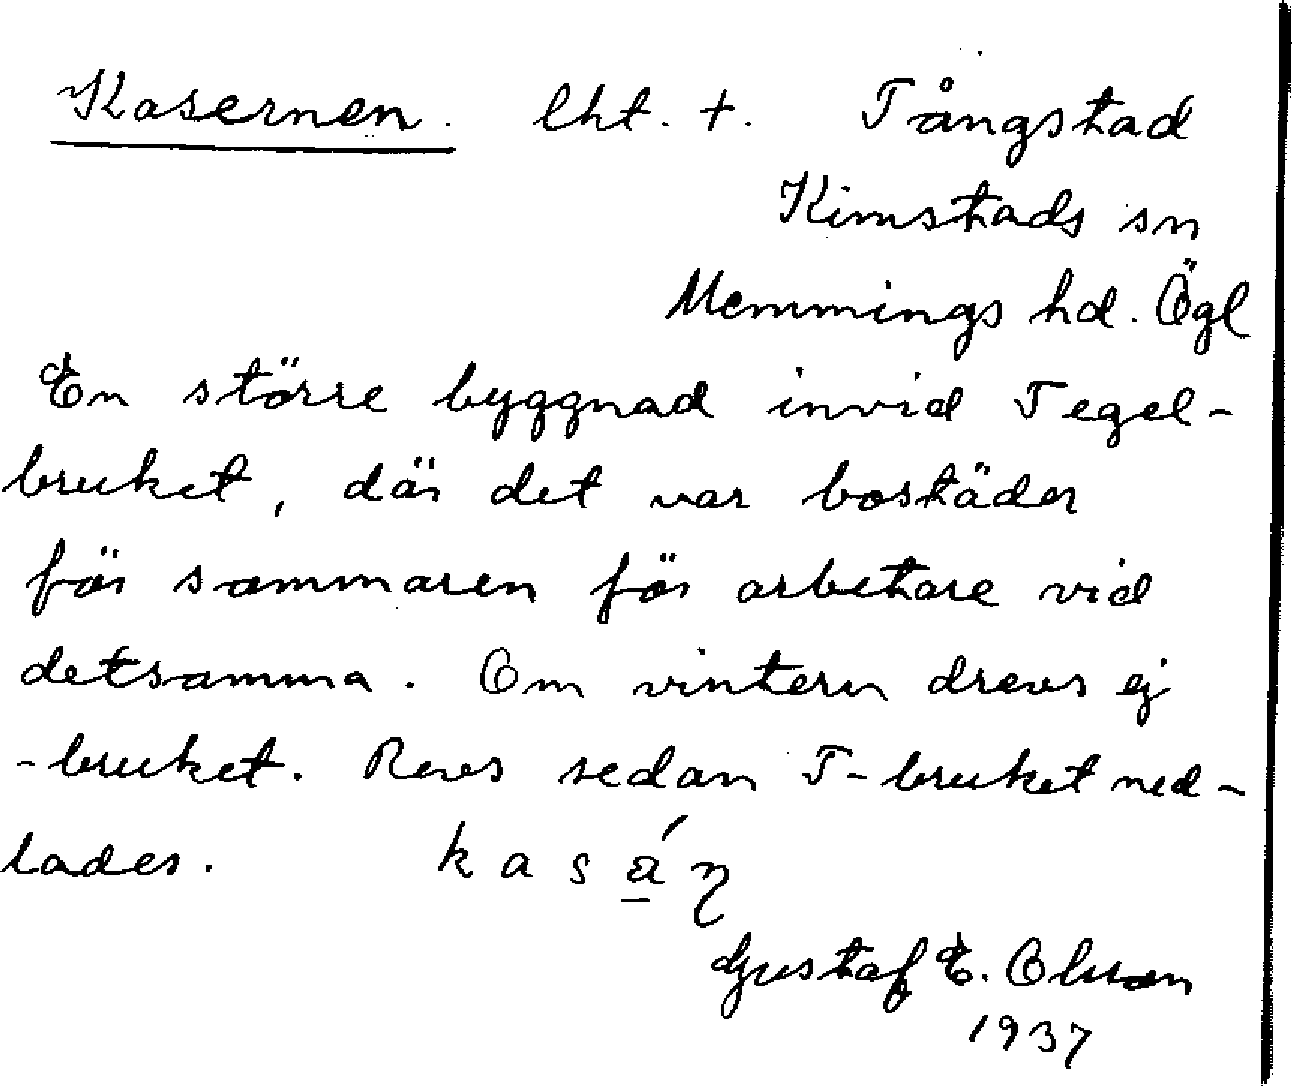 Kasernen. lht. +. Tångstad
Kimstads sn
Memmings hd. Ögl
En större byggnad invid Tegel-
bruket, där det var bostäder
för sommaren för arbetare vid
detsamma. Om vintern drevs ej
-bruket. Revs sedan T-bruket ned-
lades. kasá̱ɳ
Gustaf E. Olsson
1937